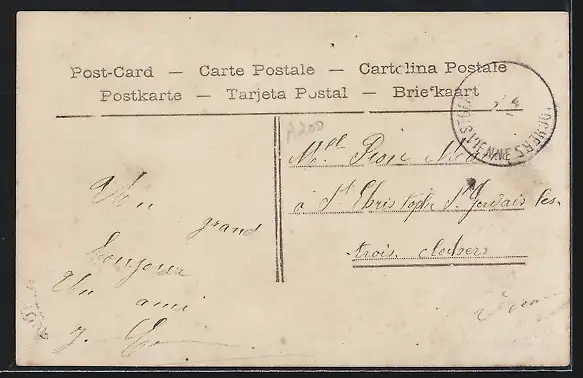 Post-Card — Carte Postale — Cartolina Postale
Postkarte — Tarjeta Postal — Briefkaart
A200
Un
grand
bonjour
Un ami
J.
Mlle
à St Christophe St Gervais les
trois clochers
Vienne
LOCHERS
VIENNE